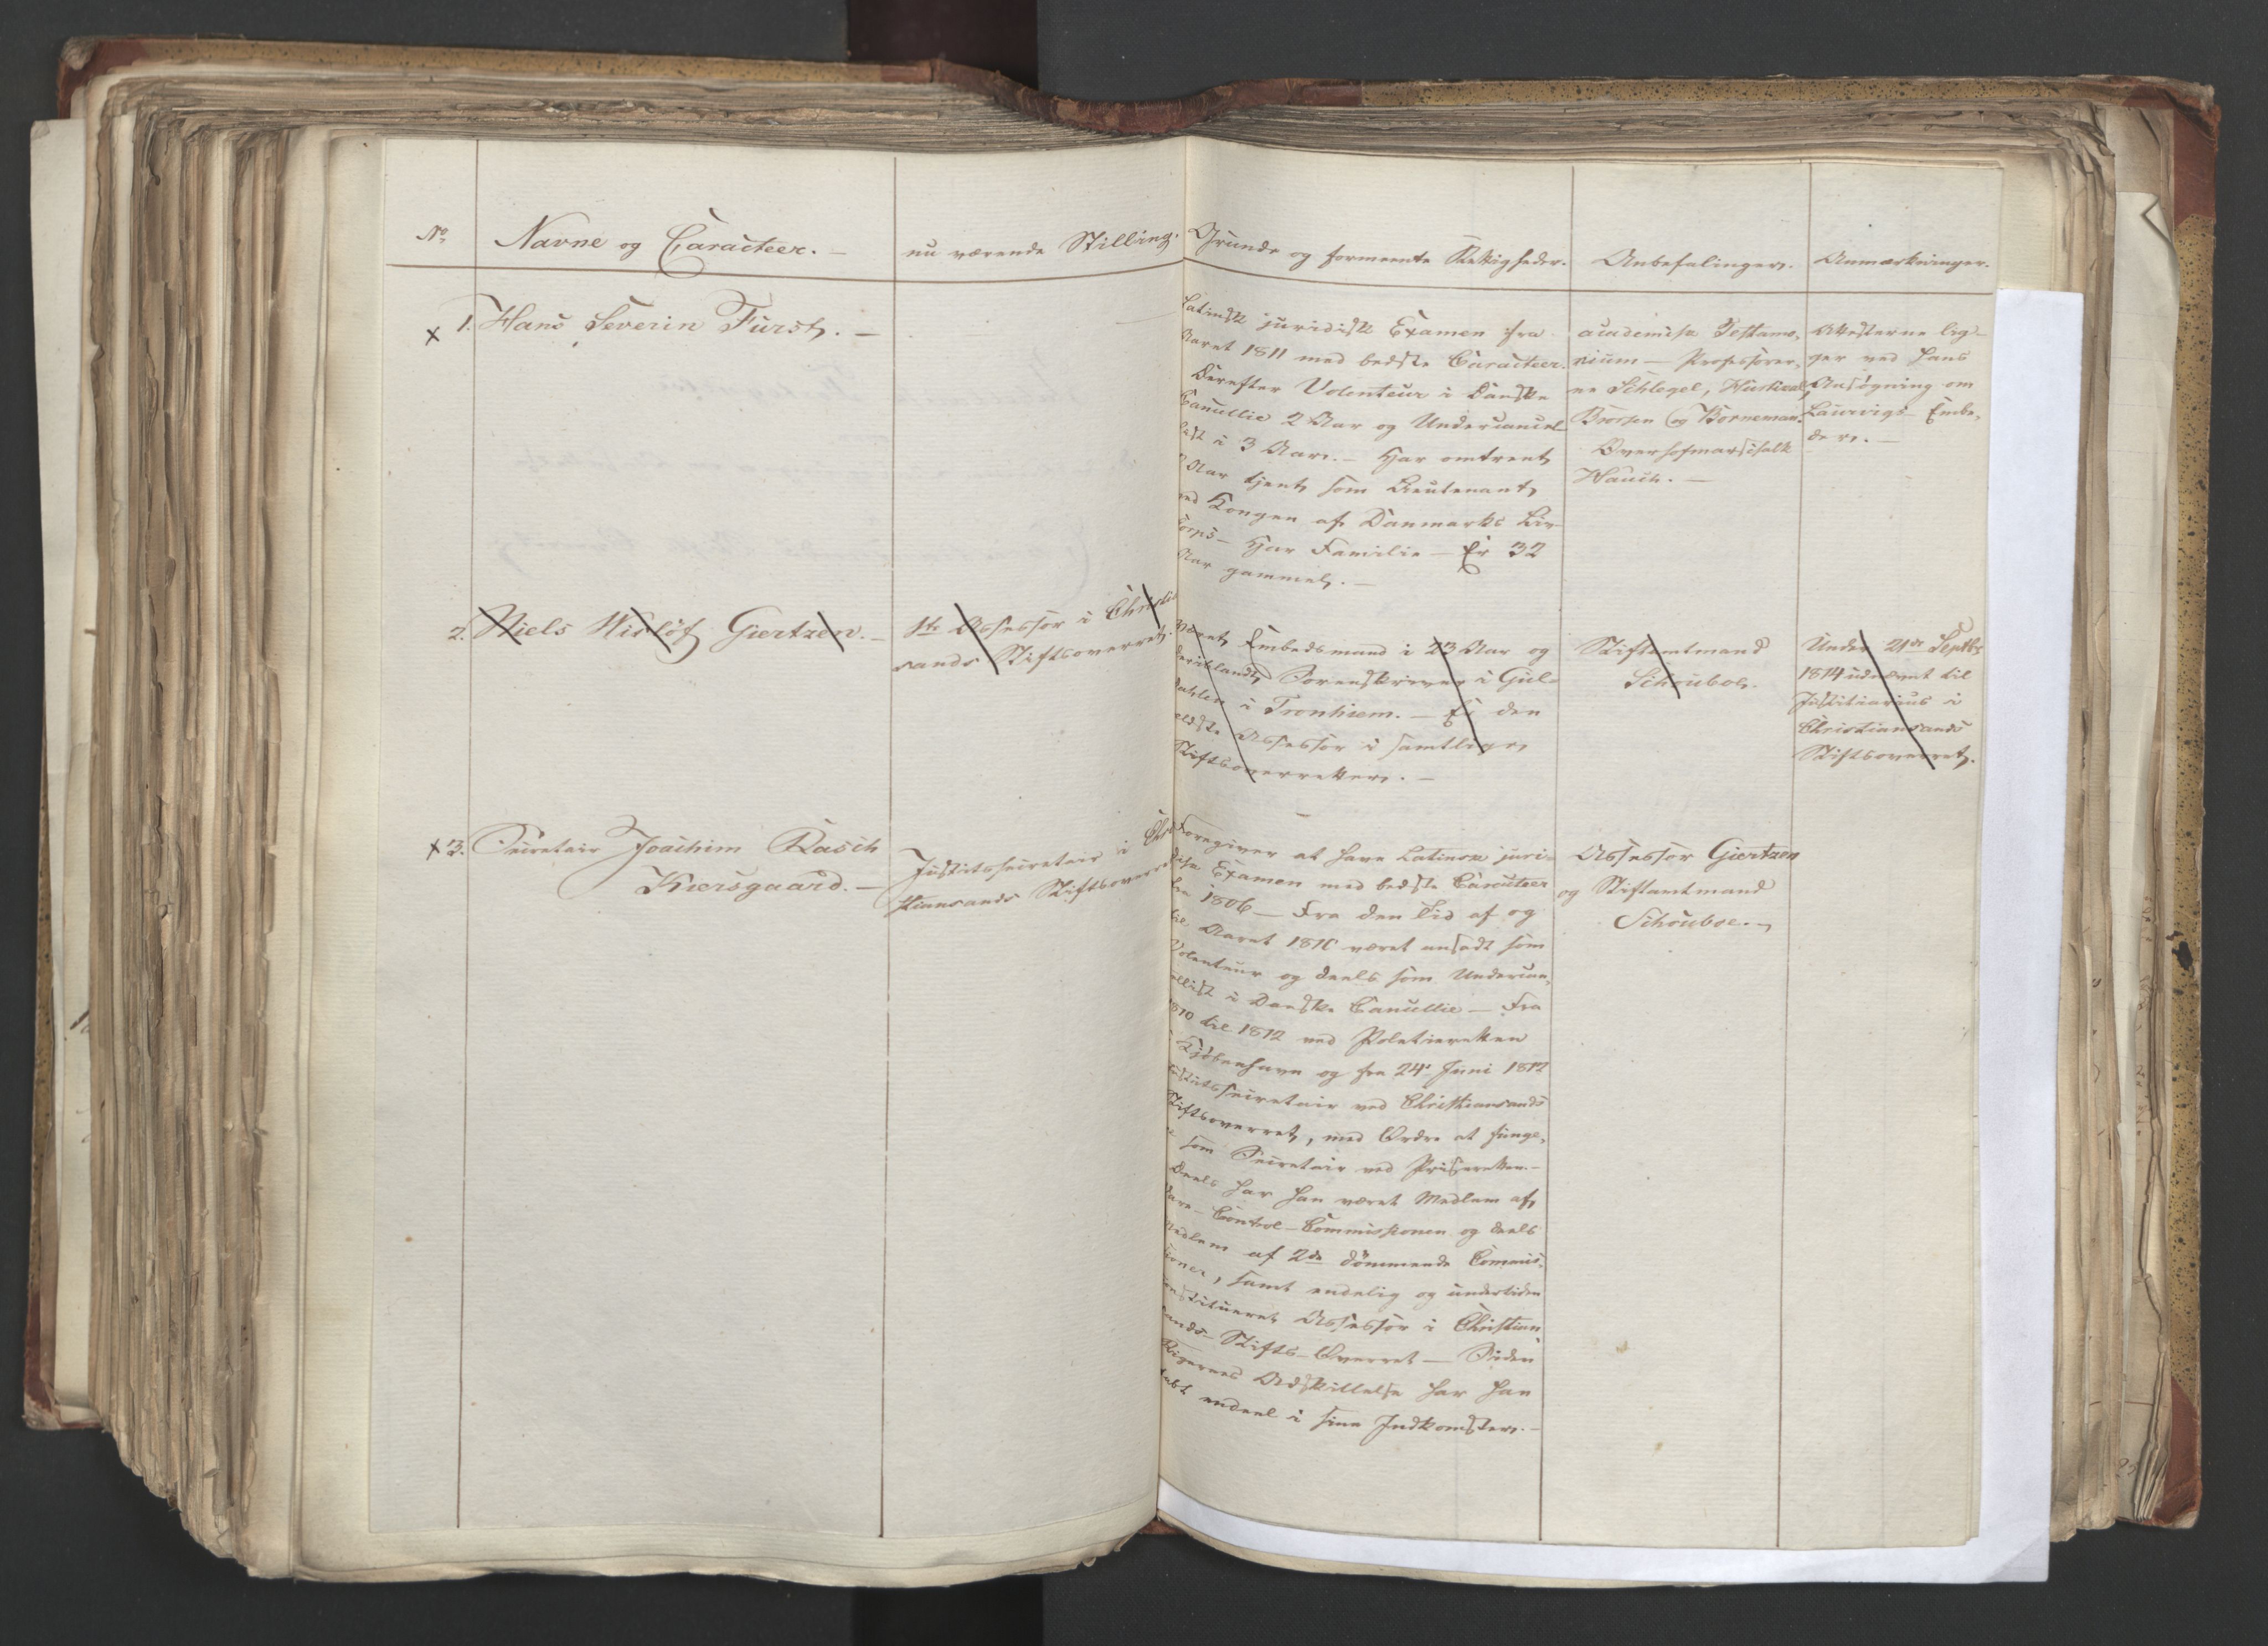 No. Navne og Caracteer. — nu værende Stilling. Grunde og formeente Rettigheder. Anbefalinger. Anmærkninger.
x 1. Hans Severin Fürst. —
Latinsk juridisk Examen fra
Aaret 1811 med bedste Caracteer.
Derefter Volonteur i Danske
Cancellie 2 Aar og Undercancel-
list i 3 Aar. — Har omtrent
Aar tjent som Lieutenant
ved Kongen af Danmarks Liv-
Corps — Har Familie — Er 32
Aar gammel. —
academiske Testamo-
nium — Professorer-
ne Schlegel, Hurtigkarl,
Brorson og Borneman.
Overhofmarschalk
Hauch. —
Attesterne lig-
ger ved hans
Ansøgning om
Laurvigs Embe-
der. —
2. Niels Wisløf Giertzen. —
1ste Assessor i Christian
sands Stiftsoverret.
Været Embedsmand i 23 Aar og
deriblandt Sorenskriver i Gul-
dahlen i Tronhiem. — Er den
ældste Assessor i samtlige
Stiftsoverretter. —
Stiftamtmand
Schouboe.
Under 21de Septbr
1814 udnævnt til
Justitiarius i
Christiansands
Stiftsoverret.
x 3. Secretair Joachim Rasch
Kiersgaard. —
Justitssecretair i Chri
stiansands Stiftsoverret
Foregiver at have Latinsk juri-
diske Examen med bedste Caracteer
fra 1806 — Fra den Tid af og
til Aaret 1810 været ansadt som
Volonteur og deels som Undercan-
cellist i Danske Cancellie — Fra
1810 til 1812 ved Politieretten
i Kjøbenhavn og fra 24. Juni 1812
Justitssecretair ved Christiansands
Stiftsoverret, med Ordre at funge-
re som Secretair ved Priseretten. —
Deels har han været Medlem af
Vare-Control-Commissionen og deels
Medlem af 2de dömmende Commis-
sioner, samt endelig og undertiden
constitueret Assessor i Christian
sands Stifts-Overret — Siden
Rigernes Adskillelse har han
tabt endeel i sine Indkomster. —
Assessor Giertzen
og Stiftamtmand
Schouboe. —